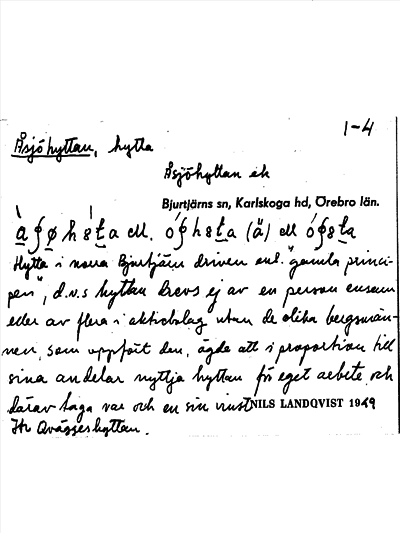 Åsjöhyttan, hytta
1-4
Åsjöhyttan ek
Bjurtjärns sn, Karlskoga hd, Örebro län.
Hytta i norra Bjurtjärn driven enl. "gamla princi-
pen", d.v.s hyttan drevs ej av en person ensam
eller av flera i aktiebolag utan de olika bergsmän-
nen, som uppfört den, ägde att i proportion till
sina andelar nyttja hyttan för eget arbete och
därav taga var och en sin vinst
NILS LANDQVIST 1949
Hr Qvägseshyttan.